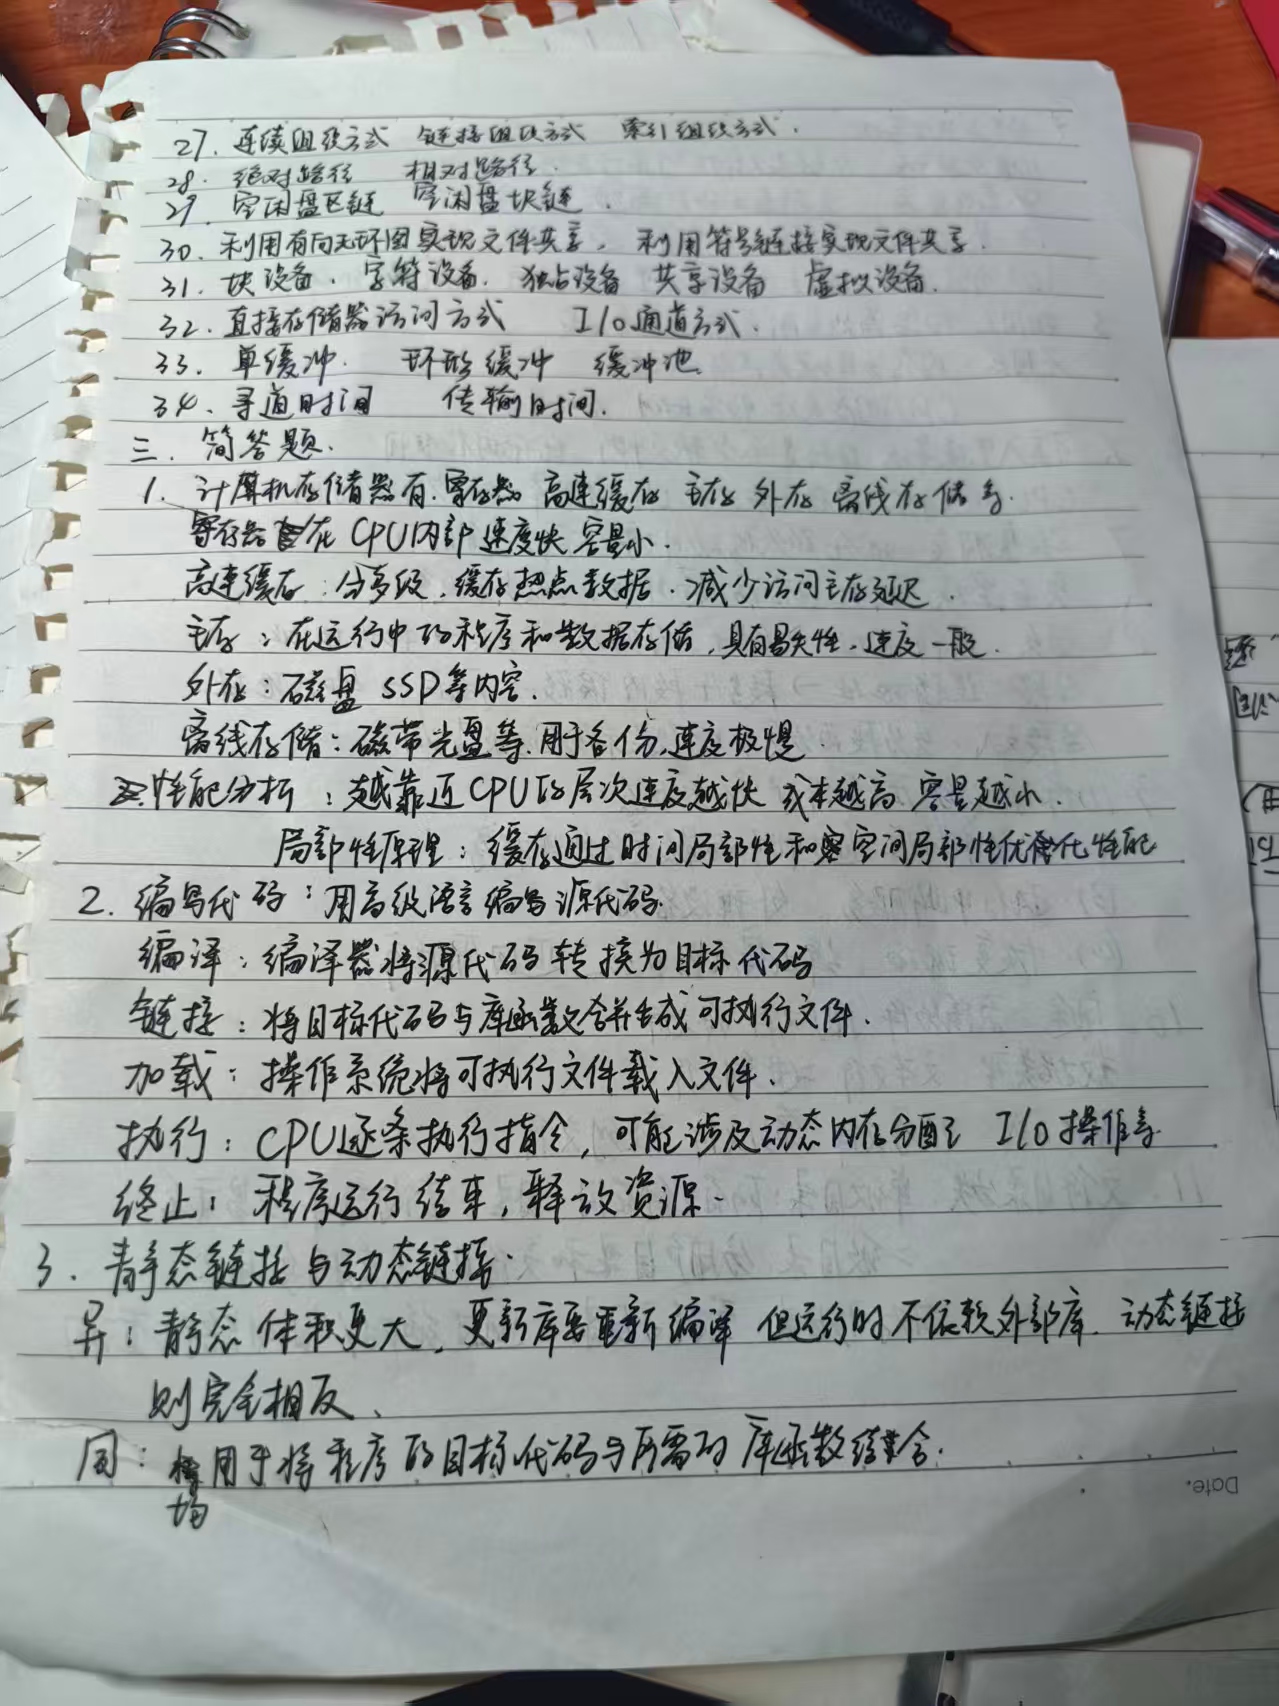 27. 连续组织方式 链接组织方式 索引组织方式.
28. 绝对路径 相对路径.
29. 空闲盘区链 空闲盘块链.
30. 利用有向无环图实现文件共享, 利用符号链接实现文件共享.
31. 块设备. 字符设备. 独占设备 共享设备 虚拟设备.
32. 直接存储器访问方式 I/O通道方式.
33. 单缓冲. 环形缓冲 缓冲池.
34. 寻道时间 传输时间.
三. 简答题.
1. 计算机存储器有.寄存器 高速缓存 主存 外存 离线存储等.
寄存器在CPU内部 速度快 容量小.
高速缓存:分多级.缓存热点数据.减少访问主存延迟.
主存:在运行中的程序和数据存储,具有易失性.速度一般.
外存:磁盘 SSD等内容.
离线存储:磁带光盘等.用于备份,速度极慢.
性能分析:越靠近CPU的层次速度越快 成本越高 容量越小.
局部性原理:缓存通过时间局部性和空间局部性优化性能
2. 编写代码:用高级语言编写源代码.
编译:编译器将源代码转换为目标代码
链接:将目标代码与库函数合并生成可执行文件.
加载:操作系统将可执行文件载入文件.
执行:CPU逐条执行指令,可能涉及动态内存分配 I/O操作等.
终止:程序运行结束,释放资源.
3. 静态链接与动态链接.
异:静态体积更大,更新库要重新编译 但运行时不依赖外部库. 动态链接
则完全相反、
同:均用于将程序的目标代码与所需的库函数结合.
Date.